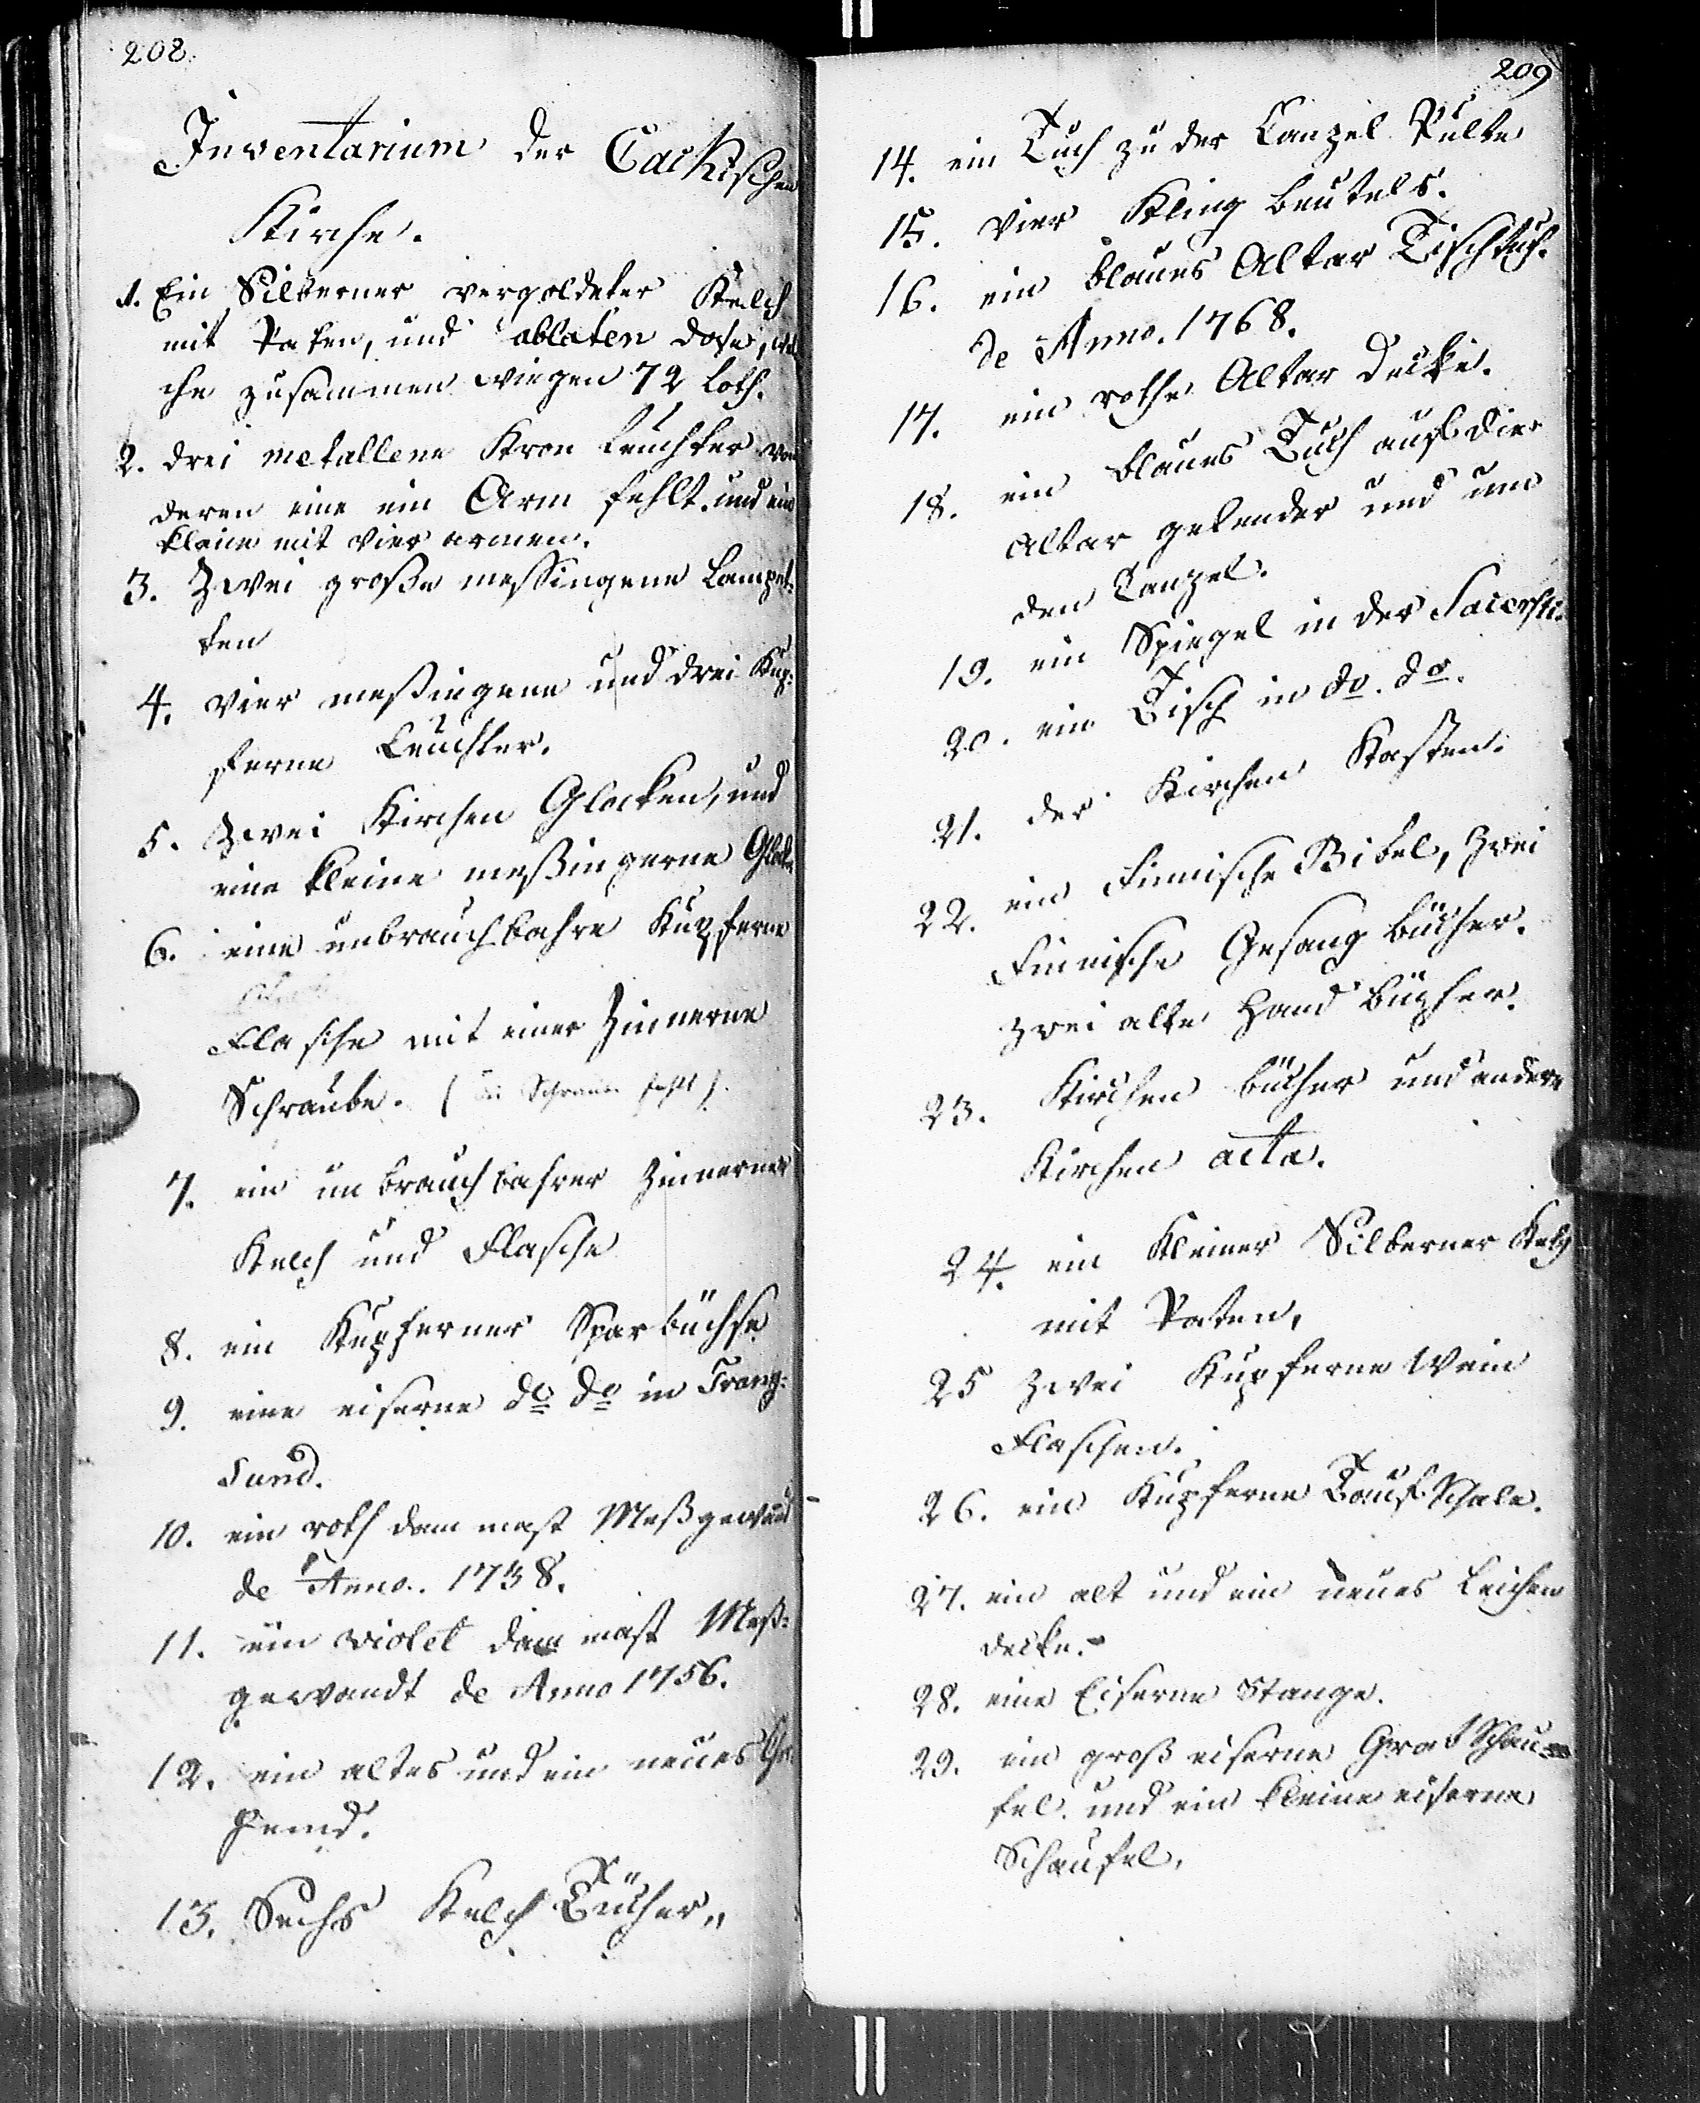 208.
Inventarium der Cackischen
Kirche.
1. Ein Silberner vergoldeter Kelch
mit Paten, und ablaten dose, wel
che zusammen wiegen 72 loth.
2. drei metallene Kron leuchter von
deren eine ein Arm fehlt. und ein
kleine mit vier armen.
3. Zwei große meßingene Lampet-
ten
4. vier meßingene und drei Kup-
ferne Leuchter.
5. Zwei Kirchen Glocken, und
eine kleine meßingerne Glocke
6. eine unbrauchbahre Kupferne
Flasche mit einer Zinnerne
Schraube. (die Schraube fehlt).
7. ein unbrauchbahrer Zinnerner
Kelch und Flasche
8. ein Kupferner Sparbüchse
9. eine eiserne do do in Trang-
sund.
10. ein roth dammast Meßgewand
de Anno. 1738.
11. ein violet dammast Meß-
gewandt de Anno 1756.
12. ein altes und ein neues
hemd.
13. Sechs Kelch Tücher„
209
14. ein Tuch zu der Canzel Pulte
15. vier Kling beutels.
16. ein blaues Altar Tischtuch.
de Anno. 1768.
17. ein rothe Altar decke.
18. ein blaues Tuch auf die
Altar gelender und um
den Canzel.
19. ein Spiegel in der Sacersti.
20. ein Tisch in do. do.
21. der Kirchen Kasten.
22. ein Finnische Bibel, zwei
Finnische Gesang bücher.
zwei alte Hand bücher.
23. Kirchen bücher und andere
Kirchen acta.
24. ein Kleiner Silberner Kelch
mit Paten,
25 zwei Kupferne Wein
Flaschen.
26. ein Kupferne Tauf Schale.
27. ein alt und ein neues Leichen
decke.
28. eine Eiserne Stange.
29. ein groß eiserne Grab Schau-
fel. und ein kleine eiserne
Schaufel.